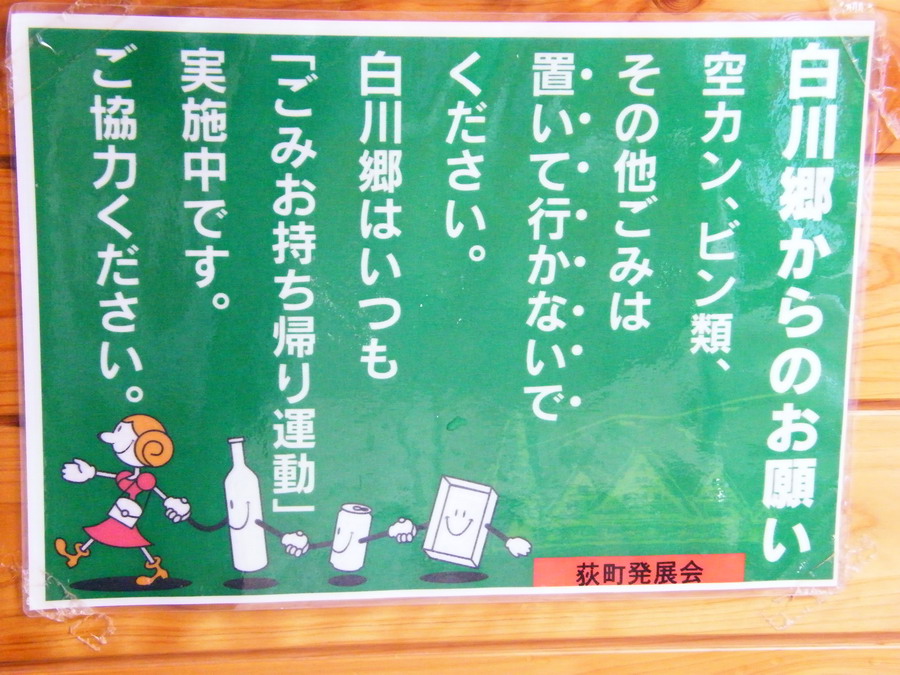 白川郷からのお願い
空カン、ビン類、
その他ごみは
置いて行かないで
ください。
白川郷はいつも
「ごみお持ち帰り運動」
実施中です。
ご協力ください。
荻町発展会